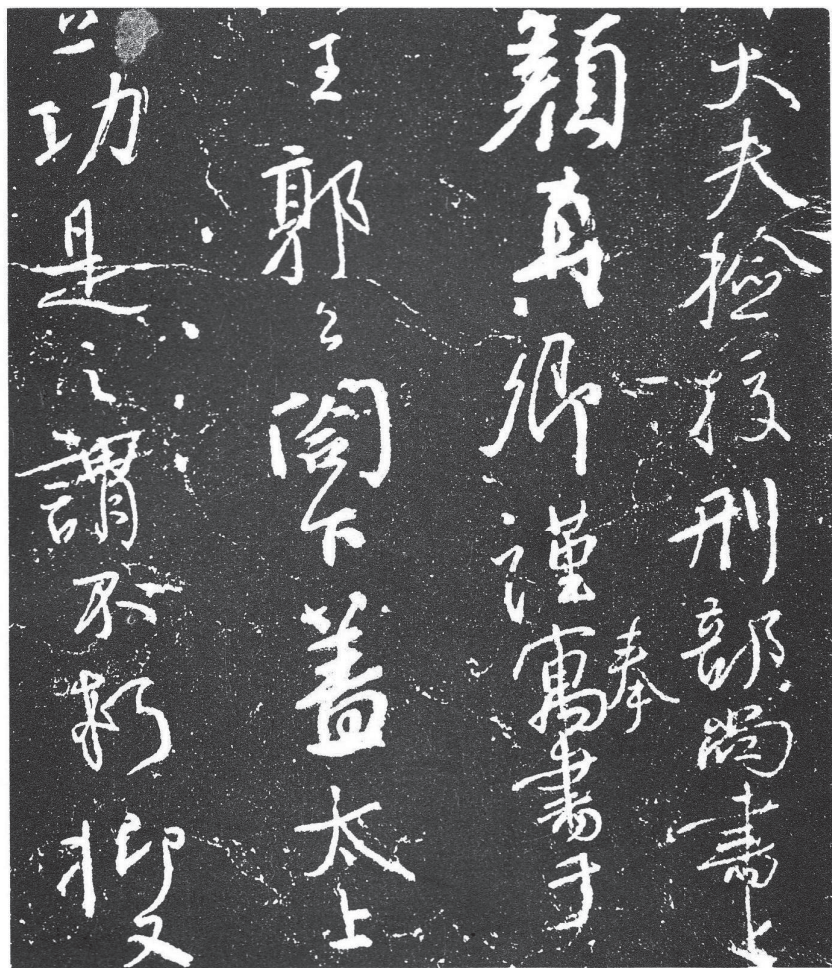 大夫檢校刑部尚書上
顏真卿謹奉寓書于
王郭公閤下蓋太上
立功是之謂不朽抑又